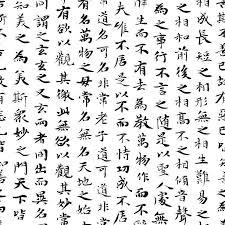 成長短之相形無之相生難易之
相和前後之相高下之相傾音聲
為之事行不言之聖人處無
生而不有為萬物作而
夫唯不居是以不而不恃功成不居
名可名非常老子道可道非常
有名萬物之母常名無名天地之始
有欲以觀徼此無欲以觀其妙常
謂之玄玄之又玄而者同出而異名同
知美之為美斯衆妙之門天下皆